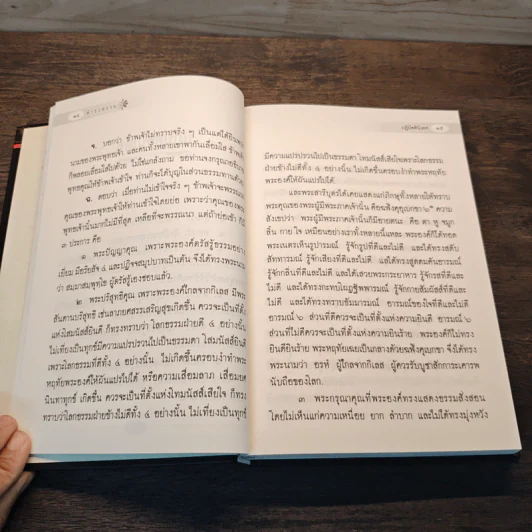 ๑๔ สารวรรณ
จ. บอกว่า ข้าพเจ้าไม่ทราบจริง ๆ เป็นแต่ได้ยิน
นามของพระพุทธเจ้า และคนทั้งหลายเขาพากันเลื่อมใส ข้าพเจ้า
ก็พลอยเลื่อมใสไปด้วย ไม่ใช่แกล้งถาม ขอท่านจงกรุณาอธิบาย
พุทธคุณให้ข้าพเจ้าเข้าใจ ท่านก็จะได้บุญในส่วนธรรมทานด้วย
ฉ. ตอบว่า เมื่อท่านไม่เข้าใจจริง ๆ ข้าพเจ้าจะพรรณนา
คุณของพระพุทธเจ้าให้ท่านเข้าใจโดยย่อ เพราะว่าคุณของพระ
พุทธเจ้านั้นมากไม่มีที่สุด เหลือที่จะพรรณนา แต่ถ้าย่อเข้า ก็มี
๓ ประการ คือ
๑ พระปัญญาคุณ เพราะพระองค์ตรัสรู้ธรรมอย่าง
เยี่ยม มีอริยสัจ ๔ และปฏิจจสมุปบาทเป็นต้น จึงได้ทรงพระนาม
ว่า สมฺมาสมฺพุทฺโธ ผู้ตรัสรู้เองชอบแล้ว.
๒ พระบริสุทธิคุณ เพราะพระองค์ไกลจากกิเลส มีพระ
สันดานบริสุทธิ์ เช่นลาภยศสรรเสริญสุขเกิดขึ้น ควรจะเป็นที่ตั้ง
แห่งโสมนัสส์ยินดี ก็ทรงทราบว่า โลกธรรมฝ่ายดี ๔ อย่างนั้น
ไม่เที่ยงเป็นทุกข์มีความแปรปรวนไปเป็นธรรมดา โสมนัสส์ยินดี
เพราะโลกธรรมที่ดีทั้ง ๔ อย่างนั้น ไม่เกิดขึ้นครอบงำทำพระ
หฤทัยพระองค์ให้ผันแปรไปได้ หรือความเสื่อมลาภ เสื่อมยศ
นินทาทุกข์ เกิดขึ้น ควรจะเป็นที่ตั้งแห่งโทมนัสส์เสียใจ ก็ทรง
ทราบว่าโลกธรรมฝ่ายข้างไม่ดีทั้ง ๔ อย่างนั้น ไม่เที่ยงเป็นทุกข์
๑๕
มีความแปรปรวนไปเป็นธรรมดา โทมนัสส์เสียใจเพราะโลกธรรม
ฝ่ายข้างไม่ดีทั้ง ๔ อย่างนั้น ไม่เกิดขึ้นครอบงำทำพระหฤทัย
พระองค์ให้ผันแปรไปได้
และพระสารีบุตรได้เคยแสดงแก่ภิกษุทั้งหลายให้ทราบ
พระคุณของพระผู้มีพระภาคเจ้านั้น คือฉะฬังคุเบกขา ๖ ความ
สังเขปว่า พระผู้มีพระภาคเจ้านั้นก็มีอายตนะ คือ ตา หู จมูก
ลิ้น กาย ใจ เหมือนอย่างเราทั้งหลายนี้แหละ พระองค์ก็ได้ทอด
พระเนตรเห็นรูปารมณ์ รู้จักรูปที่ดีและไม่ดี และได้ทรงสดับ
สัททารมณ์ รู้จักเสียงที่ดีและไม่ดี และได้ทรงสูดดมคันธารมณ์
รู้จักกลิ่นที่ดีและไม่ดี และได้เสวยพระกระยาหาร รู้จักรสที่ดีและ
ไม่ดี และได้ทรงกระทบโผฏฐัพพารมณ์ รู้จักกายสัมผัสส์ที่ดีและ
ไม่ดี และได้ทรงทราบธัมมารมณ์ อารมณ์ของใจที่ดีและไม่ดี
อารมณ์ ๖ ส่วนที่ดีควรจะเป็นที่ตั้งแห่งความยินดี อารมณ์ ๖
ส่วนที่ไม่ดีควรจะเป็นที่ตั้งแห่งความยินร้าย พระองค์ก็ไม่ทรง
ยินดียินร้าย พระหฤทัยเฉยเป็นกลางด้วยฉฬังคุเบกขา จึงได้ทรง
พระนามว่า อรหํ ผู้ไกลจากกิเลส ผู้ควรรับบูชาสักการะเคารพ
นับถือของโลก.
๓ พระกรุณาคุณที่พระองค์ทรงแสดงธรรมสั่งสอน
โดยไม่เห็นแก่ความเหนื่อย ยาก ลำบาก และไม่ได้ทรงมุ่งหวัง